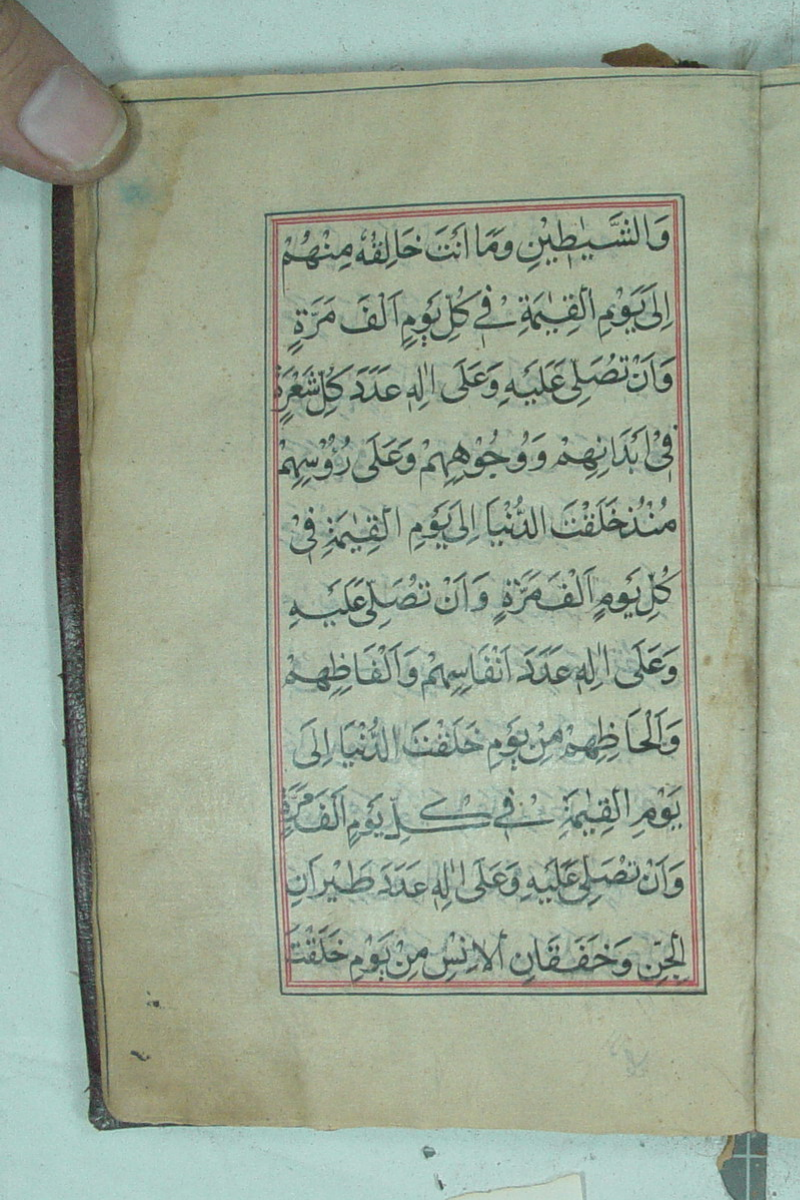 وَالشَّيٰطِيْنِ وَمَا اَنْتَ خَالِقُهٗ مِنْهُمْ
اِلٰى يَوْمِ الْقِيٰمَةِ فِيْ كُلِّ يَوْمٍ اَلْفَ مَرَّةٍ
وَاَنْ تُصَلِّىَ عَلَيْهِ وَعَلٰى اٰلِهٖ عَدَدَ كُلِّ شَعْرَةٍ
فِىْ اَبْدَانِهِمْ وَوُجُوْهِهِمْ وَعَلٰى رُؤُسِهِمْ
مُنْذُ خَلَقْتَ الدُّنْيَا اِلٰى يَوْمِ الْقِيٰمَةِ فِىْ
كُلِّ يَوْمٍ اَلْفَ مَرَّةٍ وَاَنْ تُصَلِّىَ عَلَيْهِ
وَعَلٰى اٰلِهٖ عَدَدَ اَنْفَاسِهِمْ وَاَلْفَاظِهِمْ
وَاَلْحَاظِهِمْ مِنْ يَوْمِ خَلَقْتَ الدُّنْيَا اِلٰى
يَوْمِ الْقِيٰمَةِ فِيْ كُلِّ يَوْمٍ اَلْفَ مَرَّةٍ
وَاَنْ تُصَلِّىَ عَلَيْهِ وَعَلٰى اٰلِهٖ عَدَدَ طَيْرَانِ
الْجِنِّ وَخَفَقَانِ الْاِنْسِ مِنْ يَوْمِ خَلَقْتَ